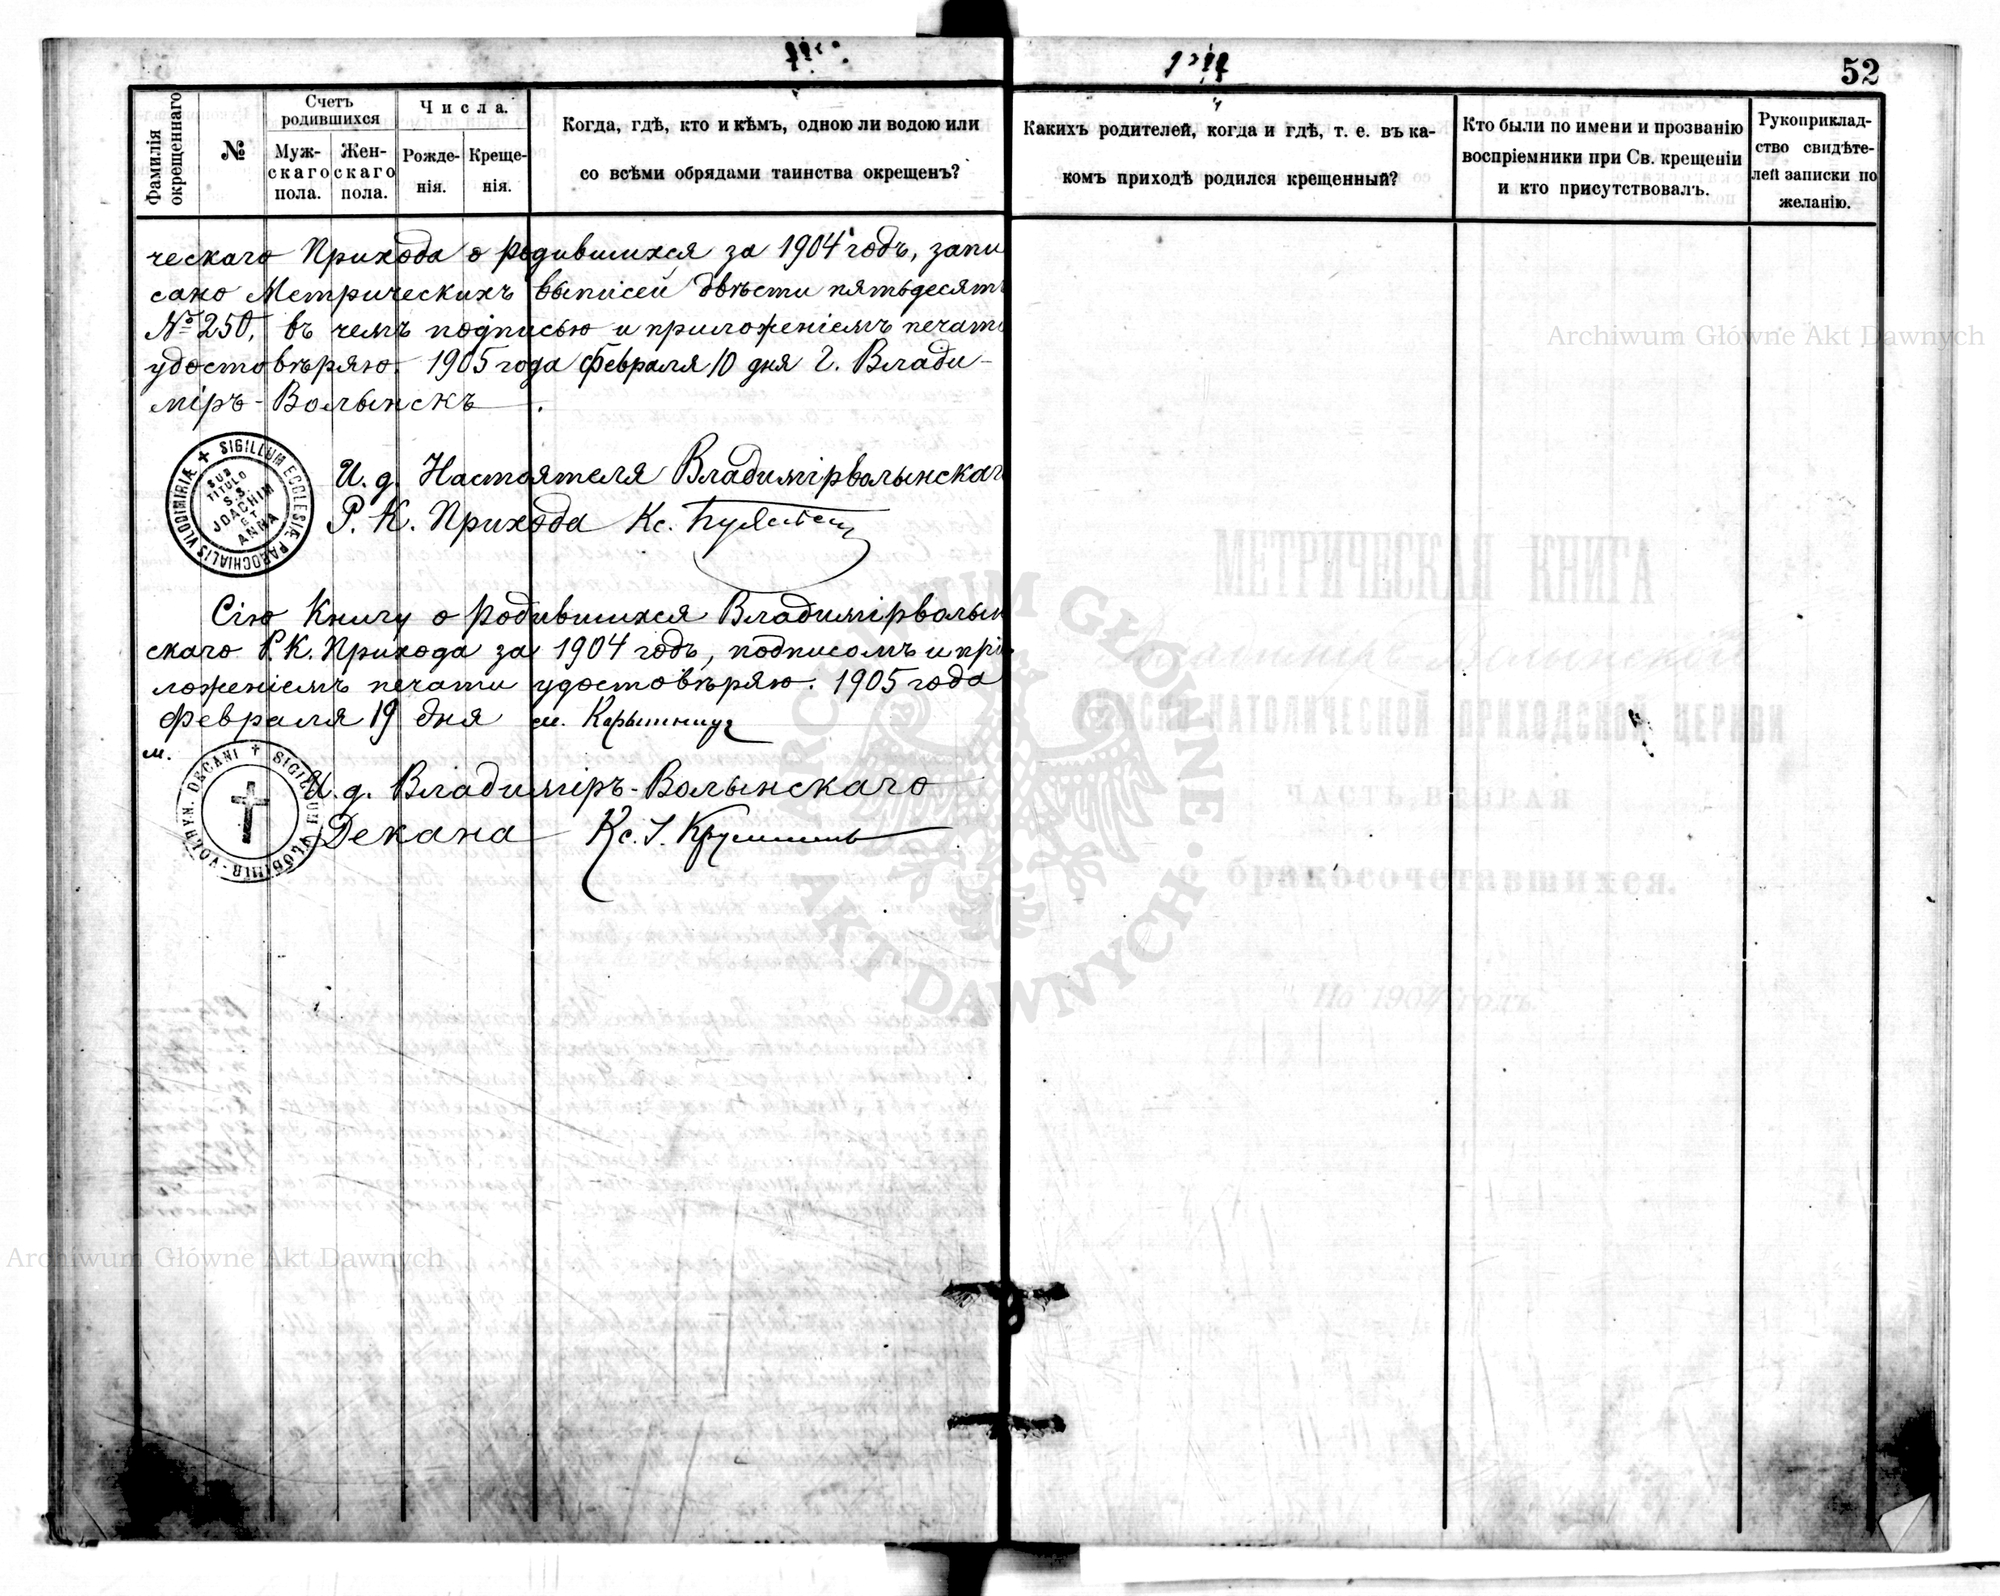 52
Фамилія окрещеннаго
№
Счетъ родившихся
Муж-
скаго
пола.
Жен-
скаго
пола.
Числа.
Рожде-
нія.
Креще-
нія.
Когда, гдѣ, кто и кѣмъ, одною ли водою или
со всѣми обрядами таинства окрещенъ?
Какихъ родителей, когда и гдѣ, т. е. въ ка-
комъ приходѣ родился крещенный?
Кто были по имени и прозванію
воспріемники при Св. крещеніи
и кто присутствовалъ.
Рукоприклад-
ство свидѣте-
лей записки по
желанію.
ческаго Прихода о родившихся за 1904 годъ, запи
сано Метрическихъ выписей двѣсти пятьдесятъ
№ 250, въ чемъ подписью и приложеніемъ печати
удостовѣряю. 1905 года Февраля 10 дня г. Влади-
міръ-Волынскъ.
И. д. Настоятеля Владимірволынскаг
Р. К. Прихода Кс.
SIGILLUM ECCLESIÆ PAROCHIALIS VLODIMIRIÆ
SUB
TITULO
S.S.
JOACHIM
ET
ANNA
Сію Книгу о родившихся Владимірволын
скаго Р. К. Прихода за 1904 годъ, подписомъ и при
ложеніемъ печати удостовѣряю. 1905 года
Февраля 19 дня м.
м.
И. д. Владиміръ-Волынскаго
Декана Кс. І.
SIGILLUM VLODIMIR-VOLHYN. DECANI
МЕТРИЧЕСКАЯ КНИГА
РИМСКО-КАТОЛИЧЕСКОЙ ПРИХОДСКОЙ ЦЕРКВИ
ЧАСТЬ ВТОРАЯ
о бракосочетавшихся.
На 1904 годъ
Archiwum Główne Akt Dawnych
ARCHIWUM GŁÓWNE AKT DAWNYCH
Archiwum Główne Akt Dawnych